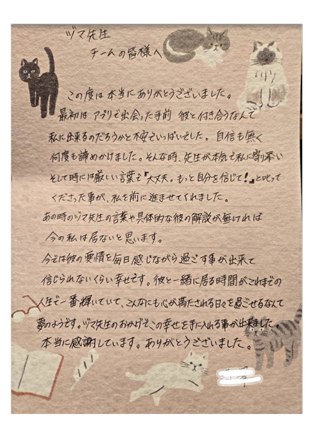 ヅマ先生
チームの皆様へ
この度は本当にありがとうございました。
最初は アプリで出会った手前 彼と付き合うなんて
私に出来るのだろうかと不安でいっぱいでした。自信も無く
何度も諦めかけました。そんな時、先生が本気で私に寄り添い
そして時には厳しい言葉で「大丈夫。もっと自分を信じて!」と叱って
くださった事が、私を前に進ませてくれました。
あの時のヅマ先生の言葉や具体的な彼の解説が無ければ
今の私は居ないと思います。
今では彼の愛情を毎日感じながら過ごす事が出来て
信じられないくらい幸せです。彼と一緒に居る時間がこれまでの
人生で一番輝いていて、こんなにも心が満たされる日々を過ごせるなんて
夢のようです。ヅマ先生のおかげでこの幸せを手に入れる事が出来ました
本当に感謝しています。ありがとうございました。